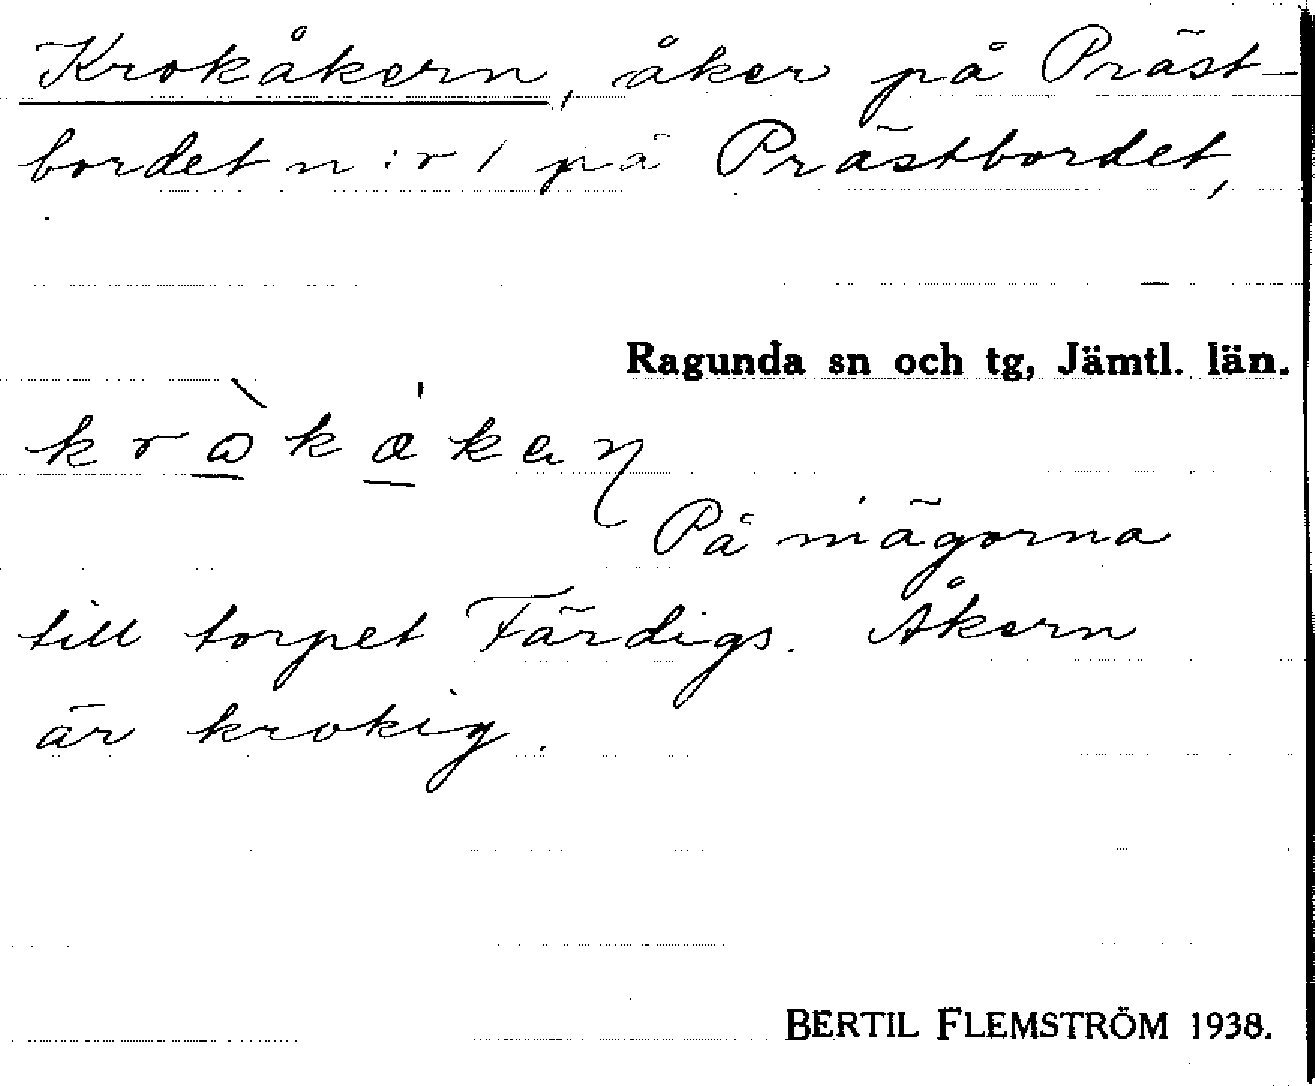 Krokåkern, åker på Präst-
bordet n:r 1 på Prästbordet,
Ragunda sn och tg, Jämtl. län.
På mägorna
till torpet Färdigs. Åkern
är krokig.
BERTIL FLEMSTRÖM 1938.